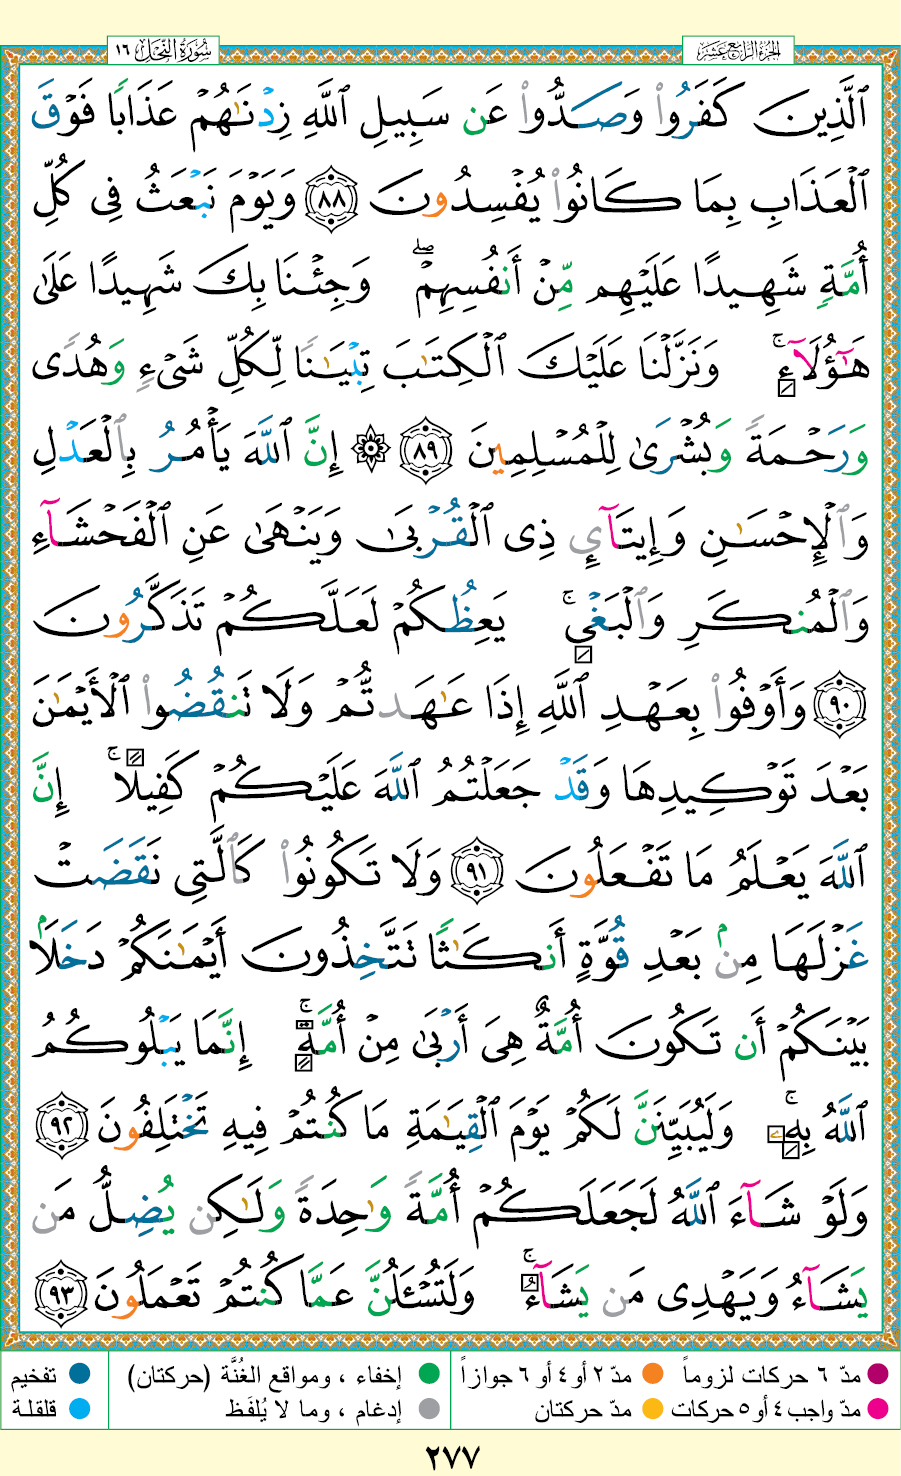 سُورَةُ النَّحْل ١٦
الجُزءُ الرَّابِع عَشَر
ٱلَّذِينَ كَفَرُوا۟ وَصَدُّوا۟ عَن سَبِيلِ ٱللَّهِ زِدْنَـٰهُمْ عَذَابًا فَوْقَ
ٱلْعَذَابِ بِمَا كَانُوا۟ يُفْسِدُونَ ٨٨ وَيَوْمَ نَبْعَثُ فِى كُلِّ
أُمَّةٍ شَهِيدًا عَلَيْهِم مِّنْ أَنفُسِهِمْ ۖ وَجِئْنَا بِكَ شَهِيدًا عَلَىٰ
هَـٰٓؤُلَآءِ ۚ وَنَزَّلْنَا عَلَيْكَ ٱلْكِتَـٰبَ تِبْيَـٰنًا لِّكُلِّ شَىْءٍ وَهُدًى
وَرَحْمَةً وَبُشْرَىٰ لِلْمُسْلِمِينَ ٨٩ ۞ إِنَّ ٱللَّهَ يَأْمُرُ بِٱلْعَدْلِ
وَٱلْإِحْسَـٰنِ وَإِيتَآئِ ذِى ٱلْقُرْبَىٰ وَيَنْهَىٰ عَنِ ٱلْفَحْشَآءِ
وَٱلْمُنكَرِ وَٱلْبَغْىِ ۚ يَعِظُكُمْ لَعَلَّكُمْ تَذَكَّرُونَ
٩٠ وَأَوْفُوا۟ بِعَهْدِ ٱللَّهِ إِذَا عَـٰهَدتُّمْ وَلَا تَنقُضُوا۟ ٱلْأَيْمَـٰنَ
بَعْدَ تَوْكِيدِهَا وَقَدْ جَعَلْتُمُ ٱللَّهَ عَلَيْكُمْ كَفِيلًا ۚ إِنَّ
ٱللَّهَ يَعْلَمُ مَا تَفْعَلُونَ ٩١ وَلَا تَكُونُوا۟ كَٱلَّتِى نَقَضَتْ
غَزْلَهَا مِنۢ بَعْدِ قُوَّةٍ أَنكَـٰثًا تَتَّخِذُونَ أَيْمَـٰنَكُمْ دَخَلًۢا
بَيْنَكُمْ أَن تَكُونَ أُمَّةٌ هِىَ أَرْبَىٰ مِنْ أُمَّةٍ ۚ إِنَّمَا يَبْلُوكُمُ
ٱللَّهُ بِهِۦ ۚ وَلَيُبَيِّنَنَّ لَكُمْ يَوْمَ ٱلْقِيَـٰمَةِ مَا كُنتُمْ فِيهِ تَخْتَلِفُونَ ٩٢
وَلَوْ شَآءَ ٱللَّهُ لَجَعَلَكُمْ أُمَّةً وَٰحِدَةً وَلَـٰكِن يُضِلُّ مَن
يَشَآءُ وَيَهْدِى مَن يَشَآءُ ۚ وَلَتُسْـَٔلُنَّ عَمَّا كُنتُمْ تَعْمَلُونَ ٩٣
مدّ ٦ حركات لزوماً مدّ ٢ أو ٤ أو ٦ جوازاً إخفاء ، ومواقع الغُنَّة (حركتان) تفخيم
مدّ واجب ٤ أو ٥ حركات مدّ حركتان إدغام ، وما لا يُلفَظ قلقلة
٢٧٧